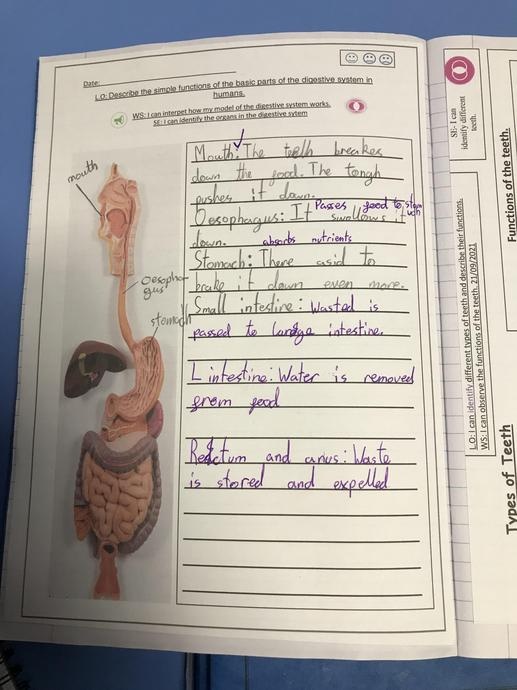 Date:
L.O: Describe the simple functions of the basic parts of the digestive system in
humans.
WS: I can interpet how my model of the digestive system works.
SE: I can identify the organs in the digestive sytem
mouth
Oesophar
gus
stomach
Mouth: The teeth breakes
down the food. The tongh
pushes it down.
Passes food to stomuch
Oesophagus: It swallows it
down.
absorbs nutrients
Stomach: There asid to
brake it down even more.
Small intestine: Wasted is
passed to large intestine.
L intestine: Water is removed
from food
Rectum and anus: Waste
is stored and expelled
SE: I can
identify different
teeth.
L.O: I can identify different types of teeth and describe their functions.
WS: I can observe the functions of the teeth. 21/09/2021
Functions of the teeth.
Types of Teeth